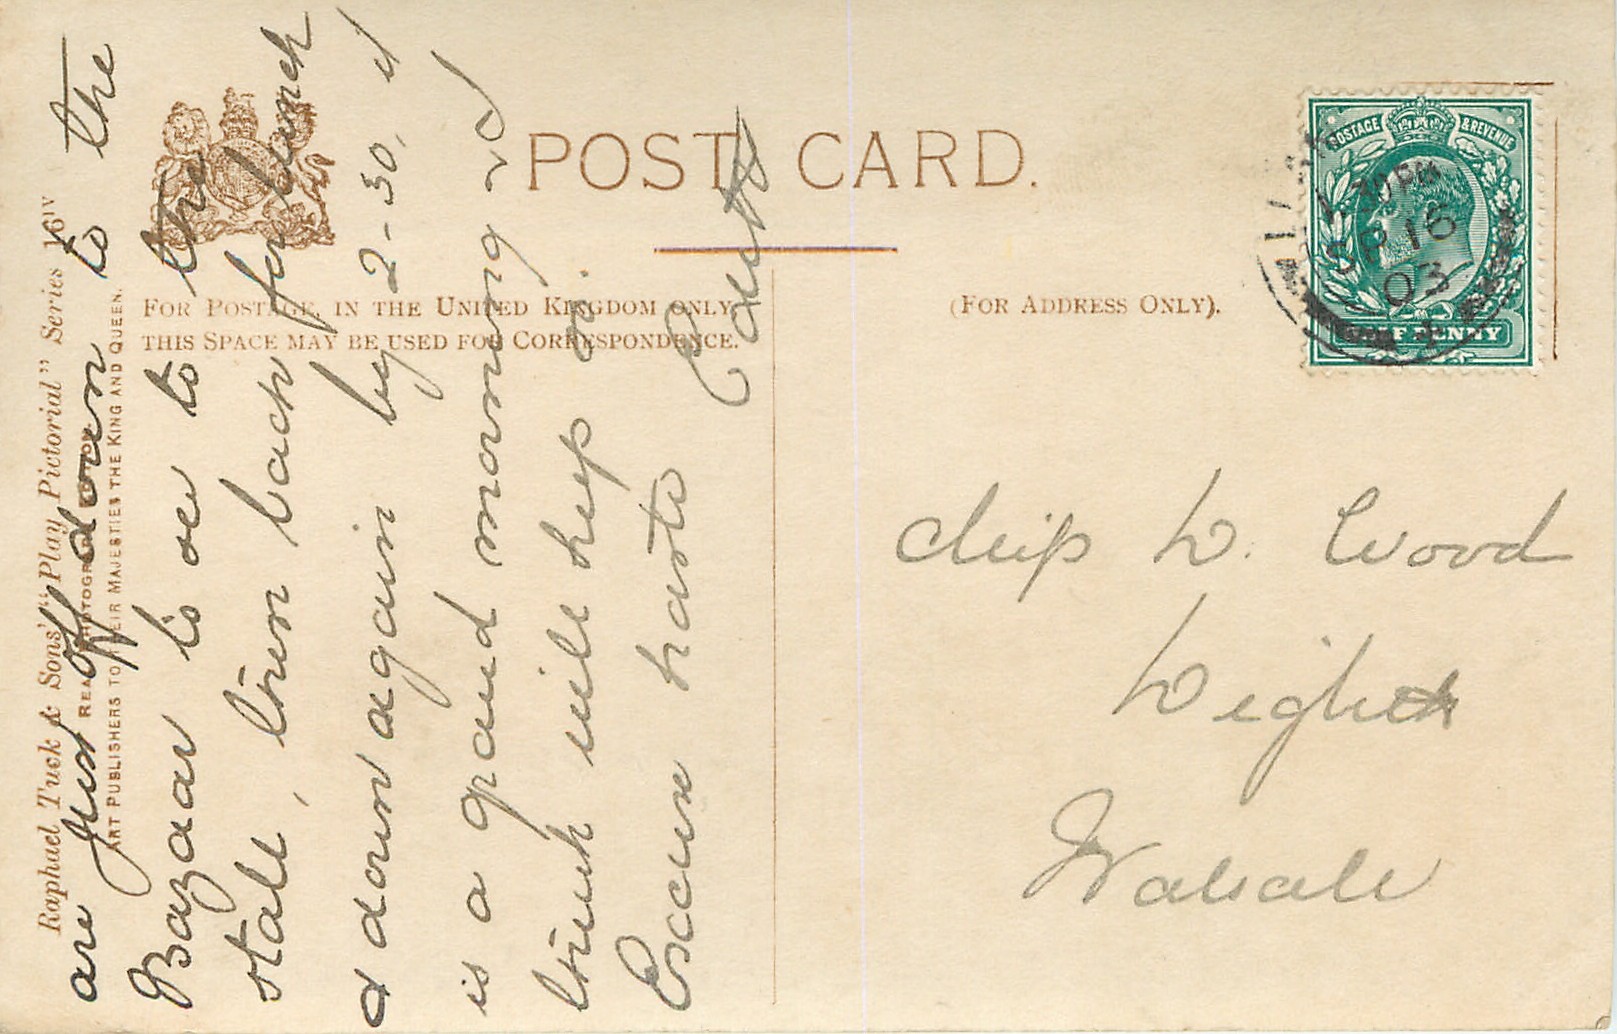 POST CARD.
FOR POSTAGE IN THE UNITED KINGDOM ONLY
THIS SPACE MAY BE USED FOR CORRESPONDENCE.
(FOR ADDRESS ONLY).
Raphael Tuck & Sons' "Play Pictorial" Series 16IV
REAL PHOTOGRAPH
ART PUBLISHERS TO THEIR MAJESTIES THE KING AND QUEEN.
are just off down to the
Bazaar to se to the
stall, then back for lunch
& down again by 2-30, it
is a grand morning I
think will keep on.
Excuse haste
Miss W. Wood
Wight
Walsall
POSTAGE & REVENUE
HALF PENNY
30 PM
SP 16
03